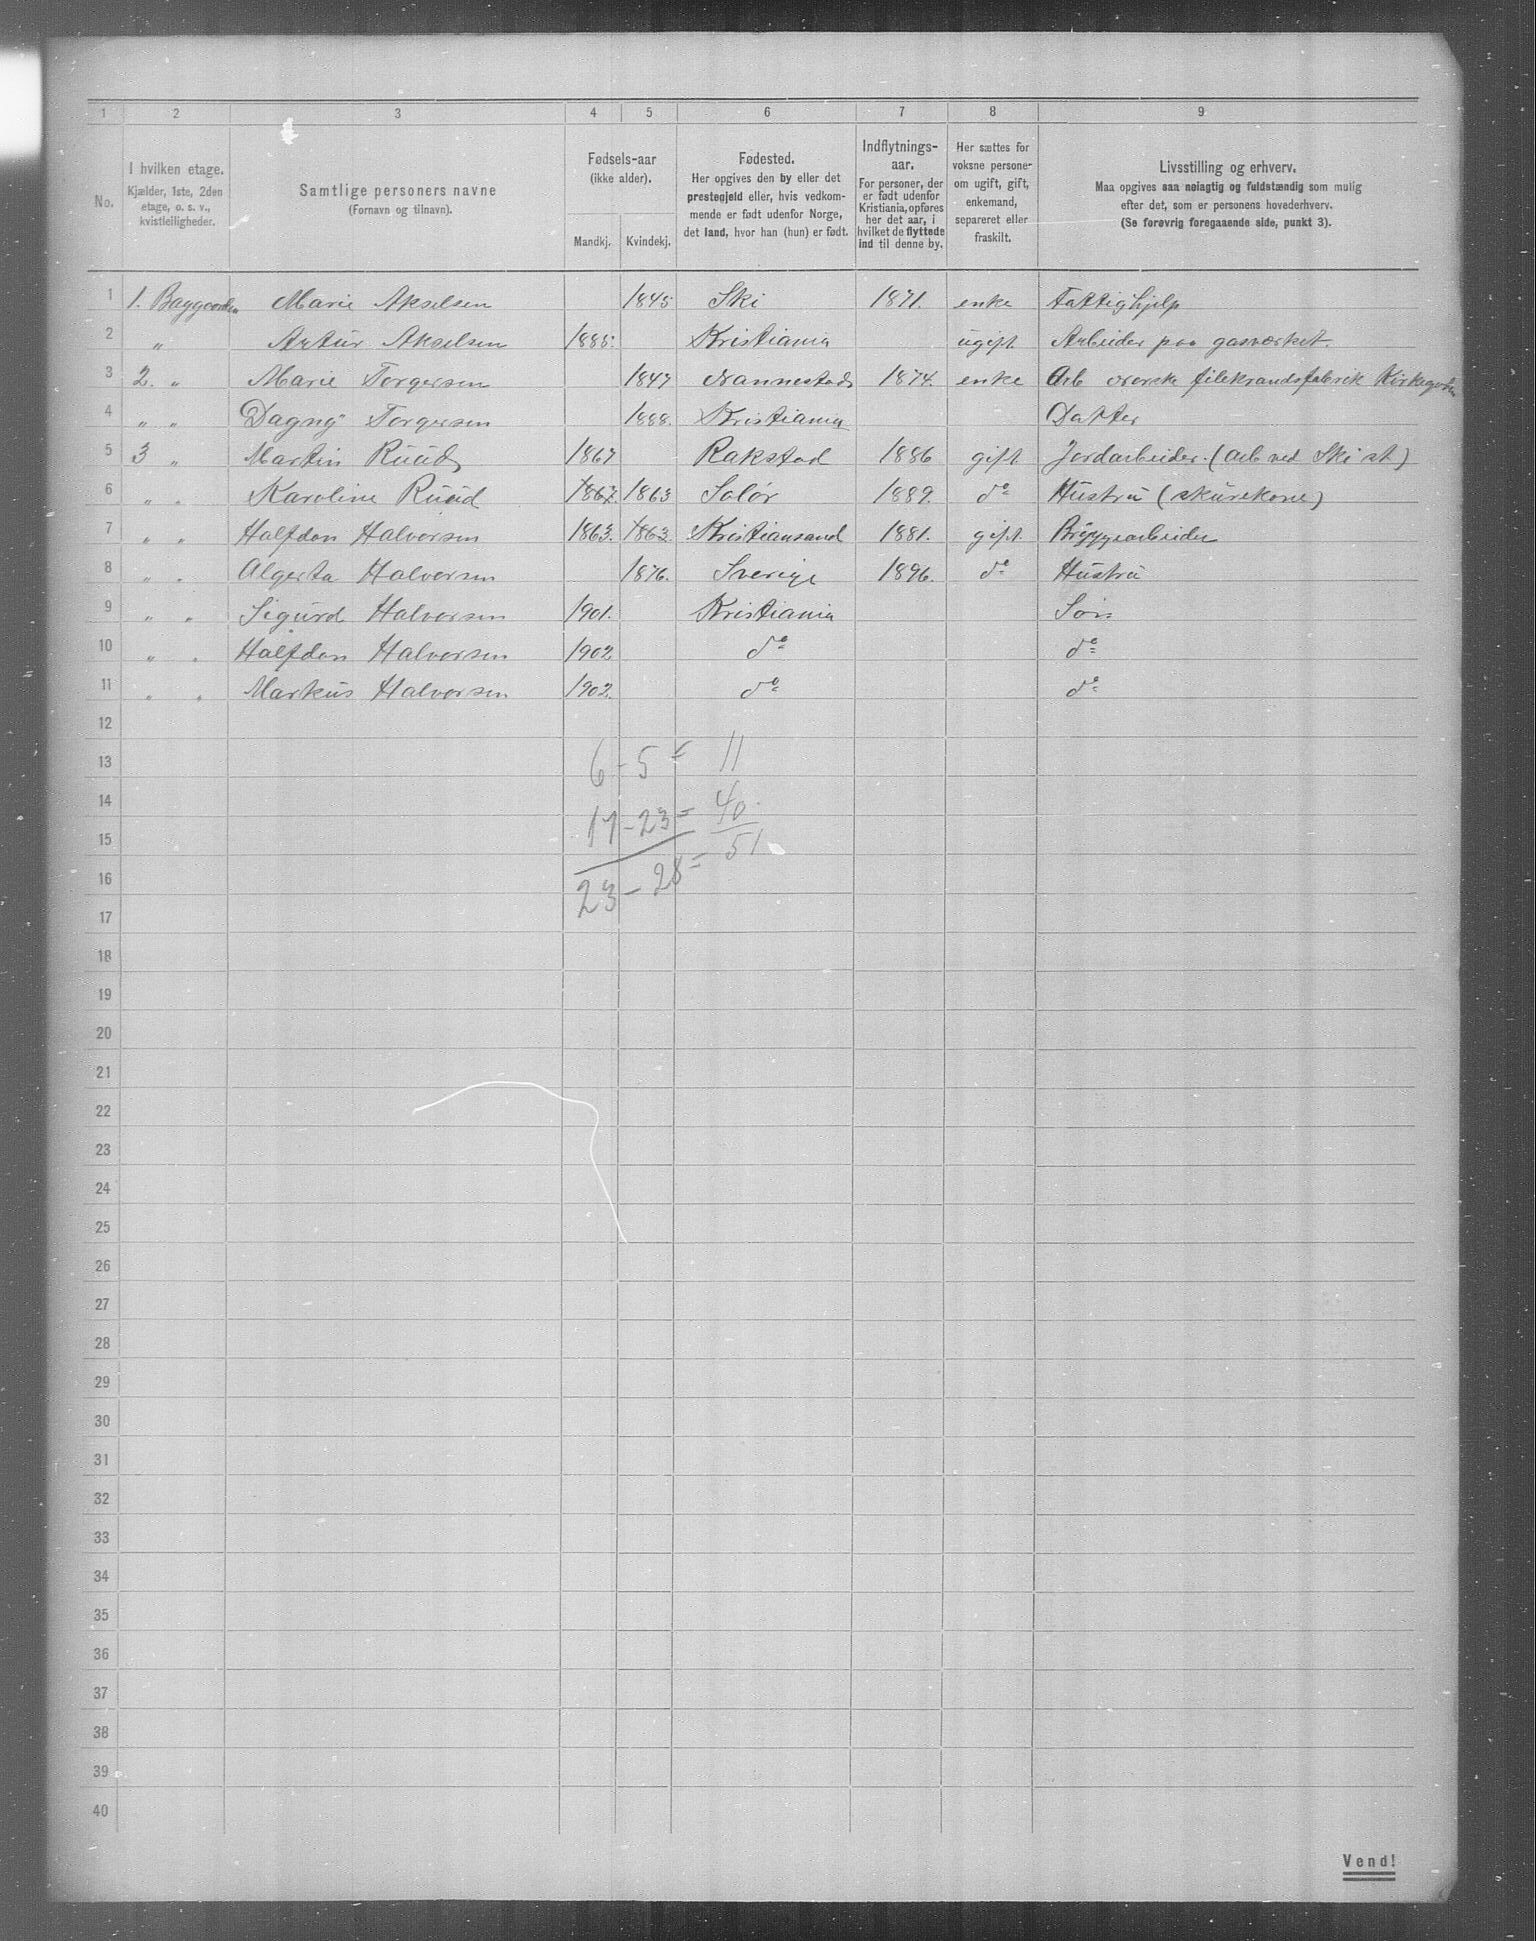 1 2 3 4 5 6 7 8 9
No.
I hvilken etage.
Kjælder, 1ste, 2den
etage, o. s. v.,
kvistleiligheder.
Samtlige personers navne
(Fornavn og tilnavn).
Fødsels-aar
(ikke alder).
Mandkj. Kvindekj.
Fødested.
Her opgives den by eller det
prestegjeld eller, hvis vedkom-
mende er født udenfor Norge,
det land, hvor han (hun) er født.
Indflytnings-
aar.
For personer, der
er født udenfor
Kristiania, opføres
her det aar, i
hvilket de flyttede
ind til denne by.
Her sættes for
voksne persone-
om ugift, gift,
enkemand,
separeret eller
fraskilt.
Livsstilling og erhverv.
Maa opgives saa nøiagtig og fuldstændig som mulig
efter det, som er personens hovederhverv.
(Se forøvrig foregaaende side, punkt 3).
1 1. Baggaarden Marie Akselsen 1845 Ski 1871. enke Fattighjelp
2 „ Artur Akselsen 1885. Kristiania ugift Arbeider paa gasværket.
3 2. „ Marie Torgersen 1847 Nannestad 1874. enke Arb norske filekrandsfabrik
4 „ „ Dagny Torgersen 1888. Kristiania Datter
5 3 „ Martin Ruud 1867 Rakstad 1886 gift Jordarbeider. (arb ved Ski st)
6 „ „ Karoline Ruud 1867 1863 Solør 1889. do Hustru (skurekone)
7 „ „ Halfdan Halvorsen 1863. 1863. Kristiansand 1881. gift. Bryggearbeider
8 „ „ Algerta Halvorsen 1876. Sverige 1896. do Hustru
9 „ „ Sigurd Halvorsen 1901. Kristiania Søn
10 „ „ Halfdan Halvorsen 1902 do do
11 „ „ Markus Halvorsen 1902. do do
12
13 6 - 5 = 11
14
15 17 - 23 = 40
16 23 - 28 = 51
17
18
19
20
21
22
23
24
25
26
27
28
29
30
31
32
33
34
35
36
37
38
39
40
Vend!